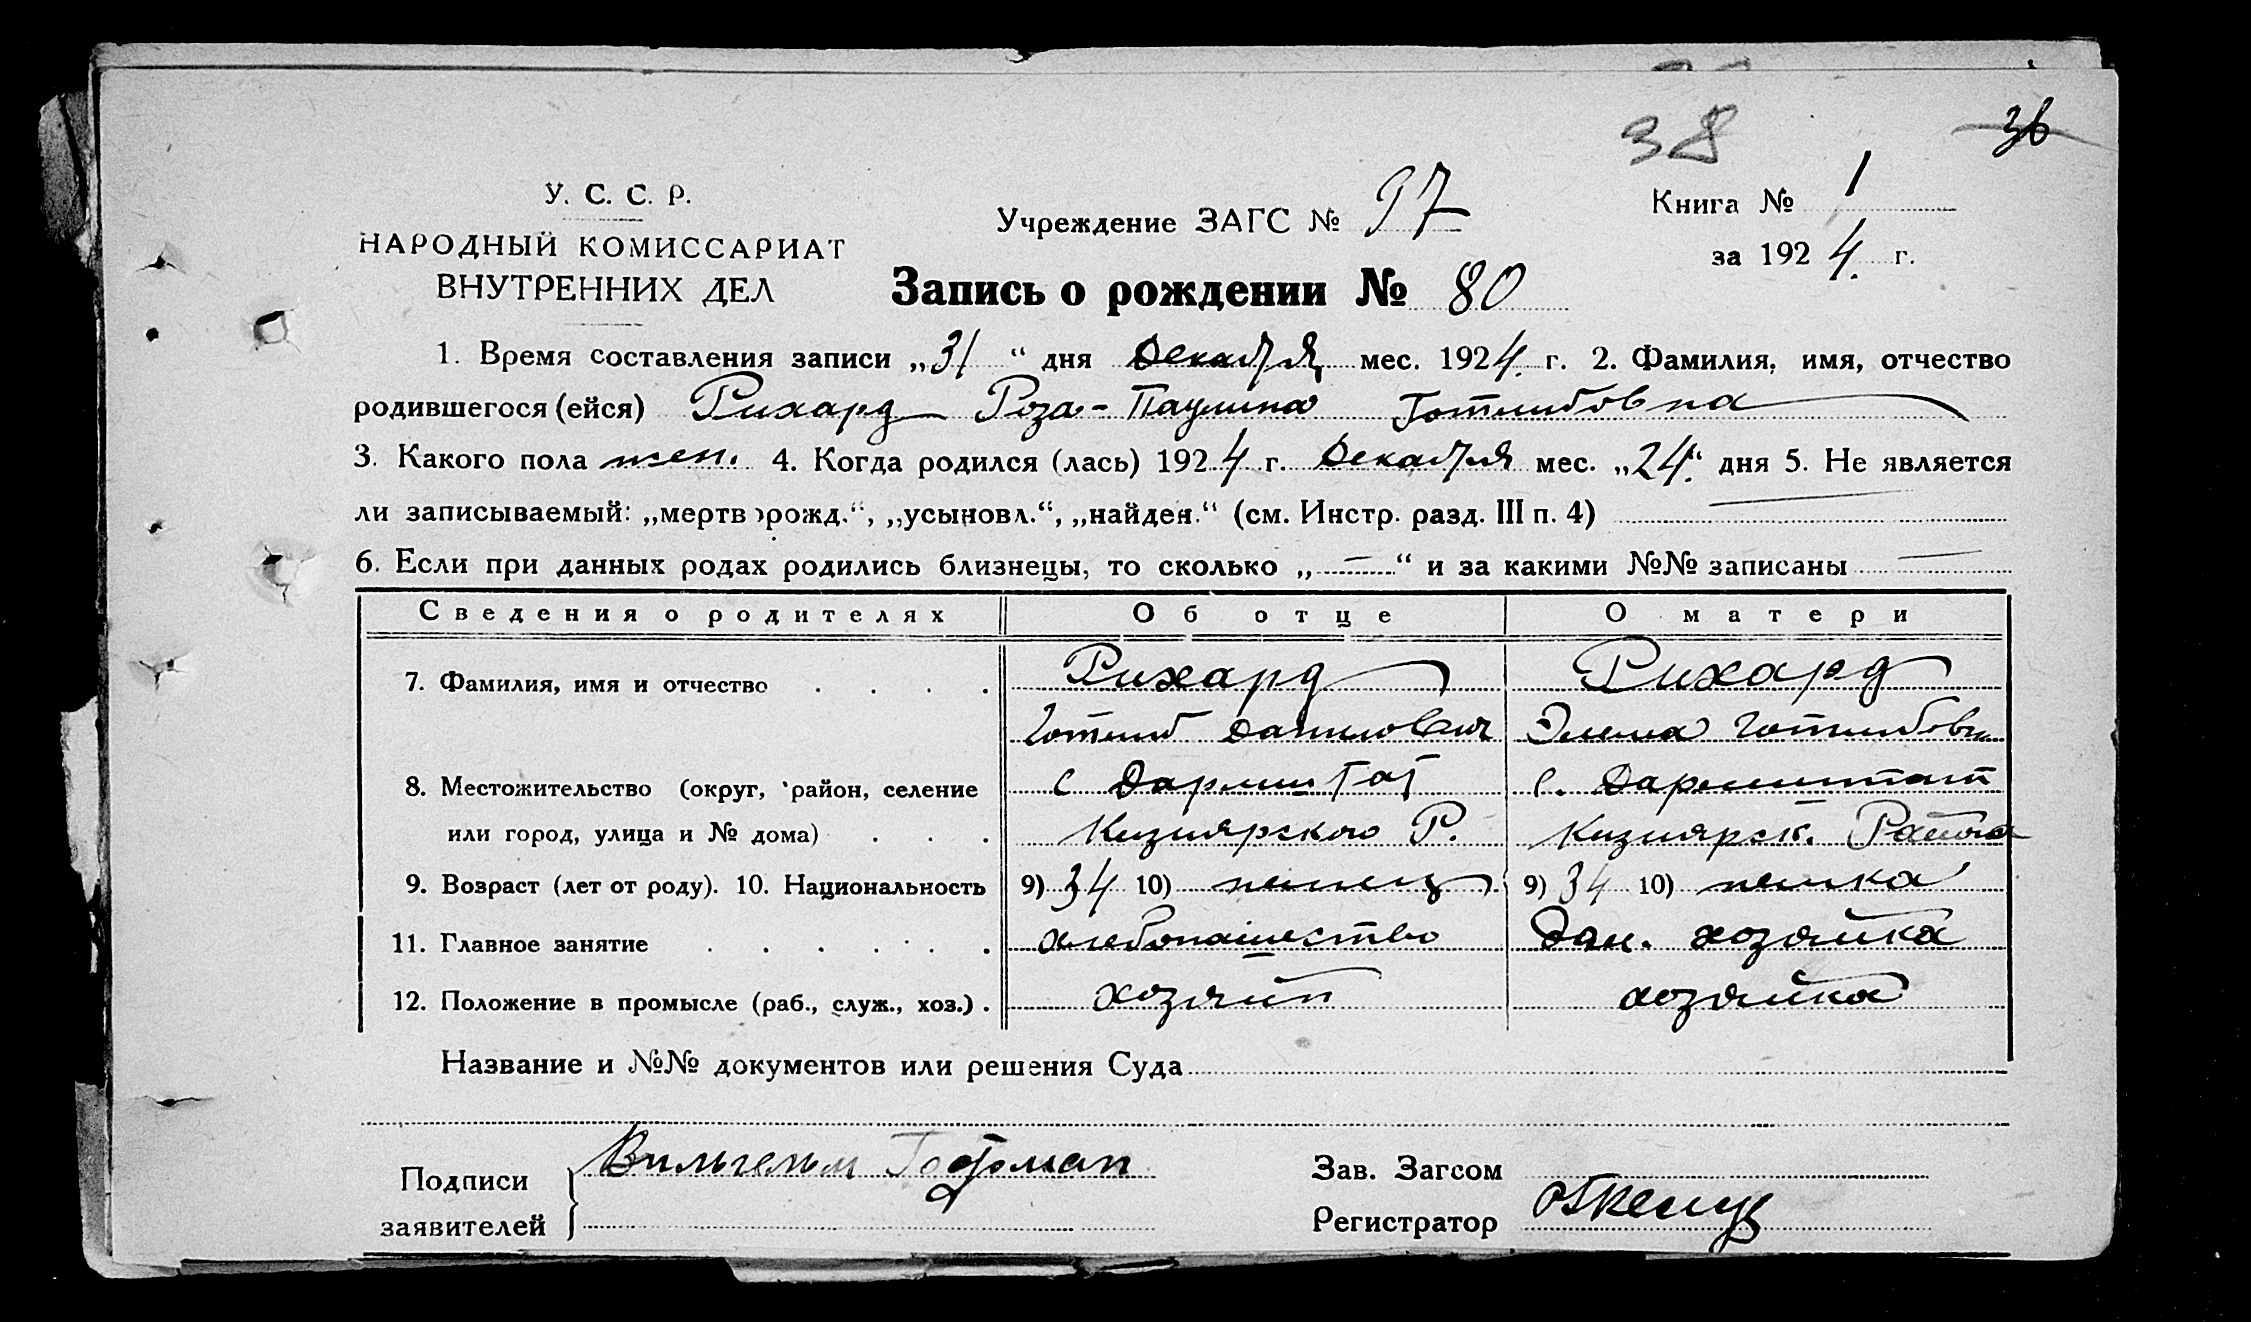 38 36
У. С. С. Р.
НАРОДНЫЙ КОМИССАРИАТ
ВНУТРЕННИХ ДЕЛ
Учреждение ЗАГС № 97
Книга № 1
за 1924 г.
Запись о рождении № 80
1. Время составления записи „31“ дня Декабря мес. 1924 г. 2. Фамилия, имя, отчество
родившегося (ейся) Рихард Роза-Паулина Готлибовна
3. Какого пола жен. 4. Когда родился (лась) 1924 г. Декабря мес. „24“ дня 5. Не является
ли записываемый: „мертворожд.“, „усыновл.“, „найден.“ (см. Инстр. разд. III п. 4) —
6. Если при данных родах родились близнецы, то сколько „—“ и за какими №№ записаны —
Сведения о родителях Об отце О матери
7. Фамилия, имя и отчество . . . . Рихард Рихард
Готлиб Данилович Готлибовн
8. Местожительство (округ, район, селение с Дармштат с. Дармштат
или город, улица и № дома) . . . Кизиярского Р. Кизиярск. Района
9. Возраст (лет от роду). 10. Национальность 9) 34 10) немец 9) 34 10) немка
11. Главное занятие . . . . . . хлебопашество Дом. хозяйка
12. Положение в промысле (раб., служ., хоз.) . хозяин хозяйка
Название и №№ документов или решения Суда
Подписи Вильгельм Гофман
заявителей
Зав. Загсом
Регистратор